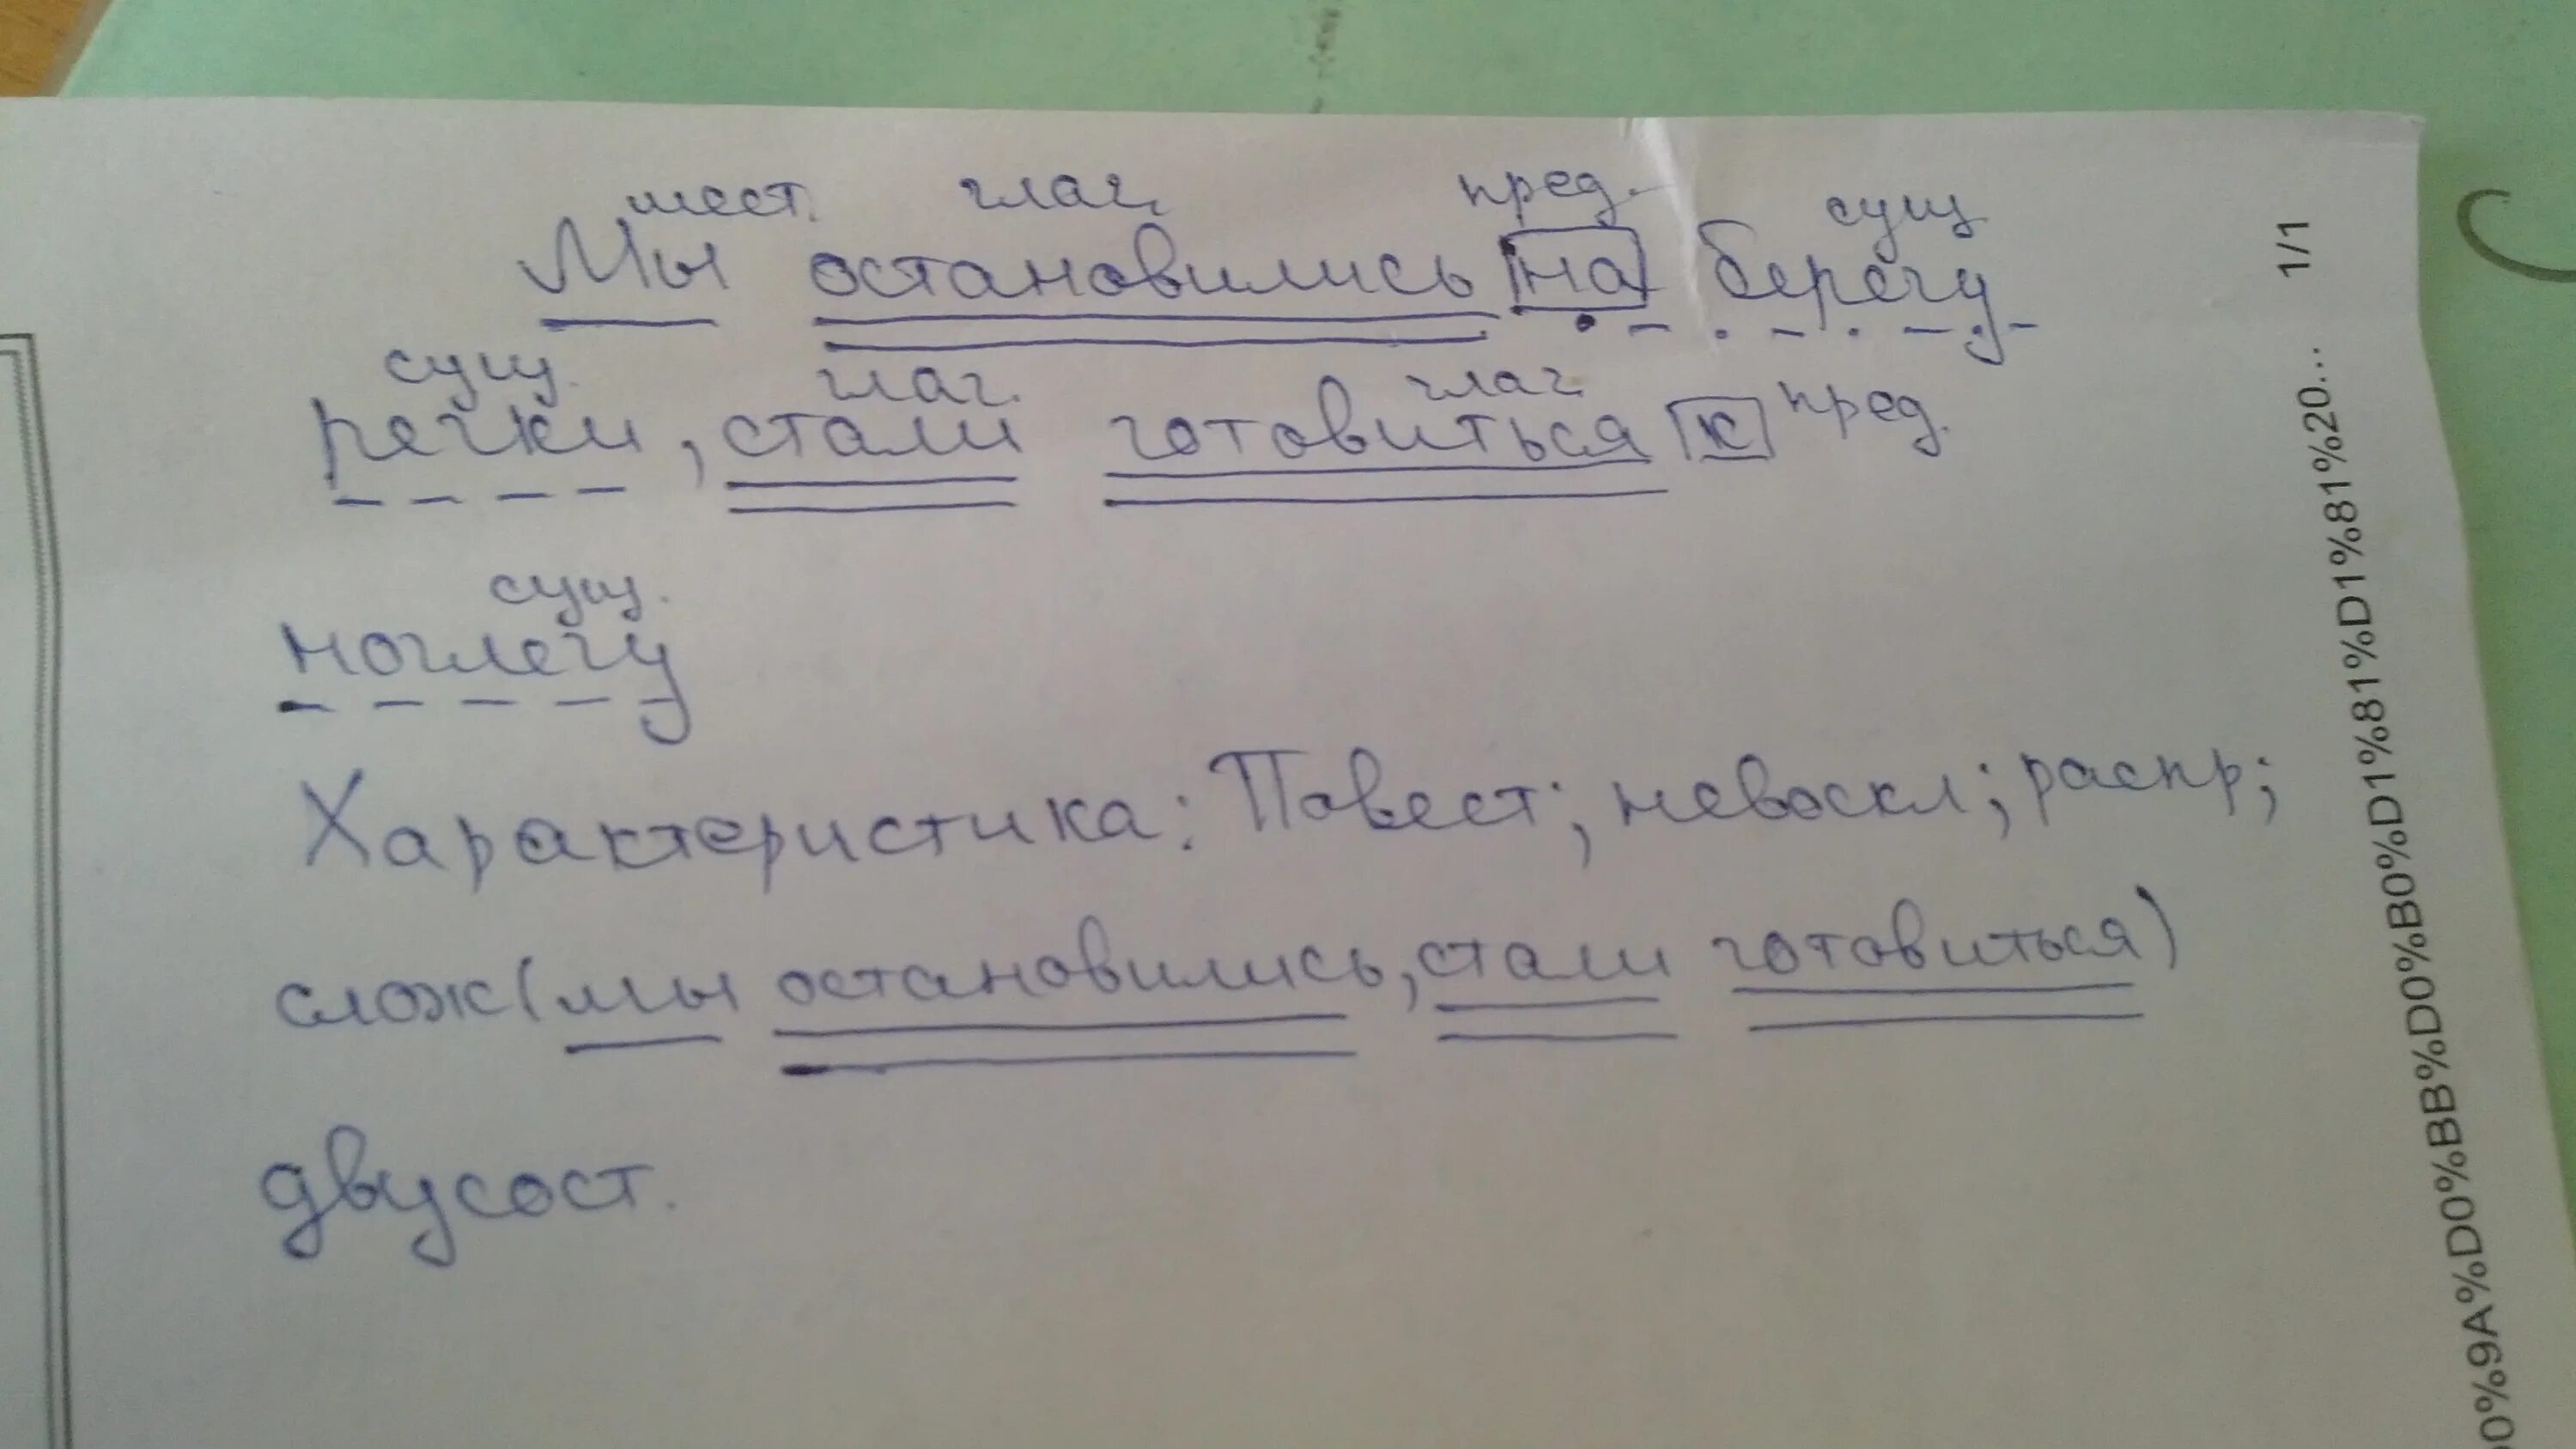 мест. глаг. пред. сущ.
Мы остановились на берегу
сущ. глаг. глаг. пред.
речки, стали готовиться к
сущ.
ночлегу
Характеристика: Повест.; невоскл; распр;
слож(мы остановились, стали готовиться)
двусост.
1/1
0%9A%D0%BB%D0%B0%D1%81%D1%81%20...